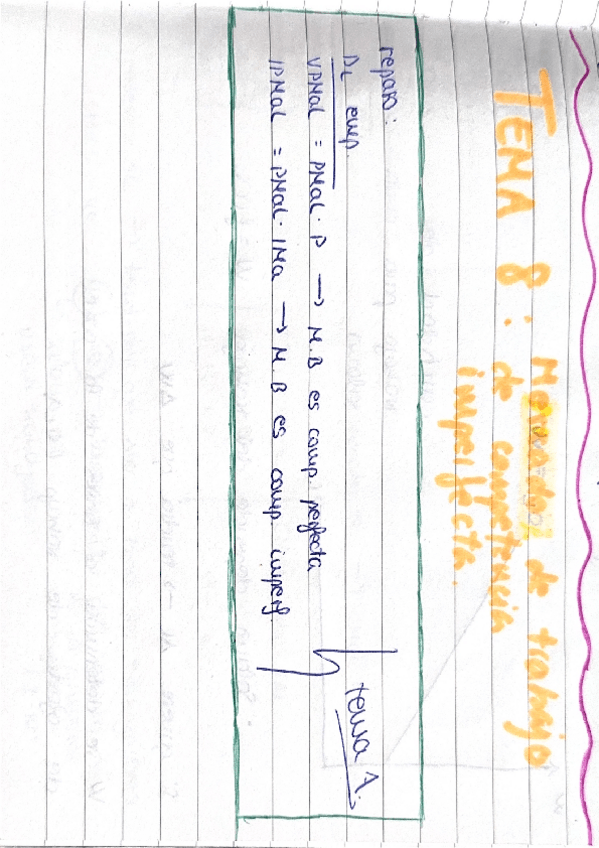 TEMA 8: Mercados de trabajo
de competencia
imperfecta.
repaso:
DL emp.
VPMaL = PMaL · P → M.B es comp. perfecta
IPMaL = PMaL · IMa → M.B es comp. imperf.
tema 7.